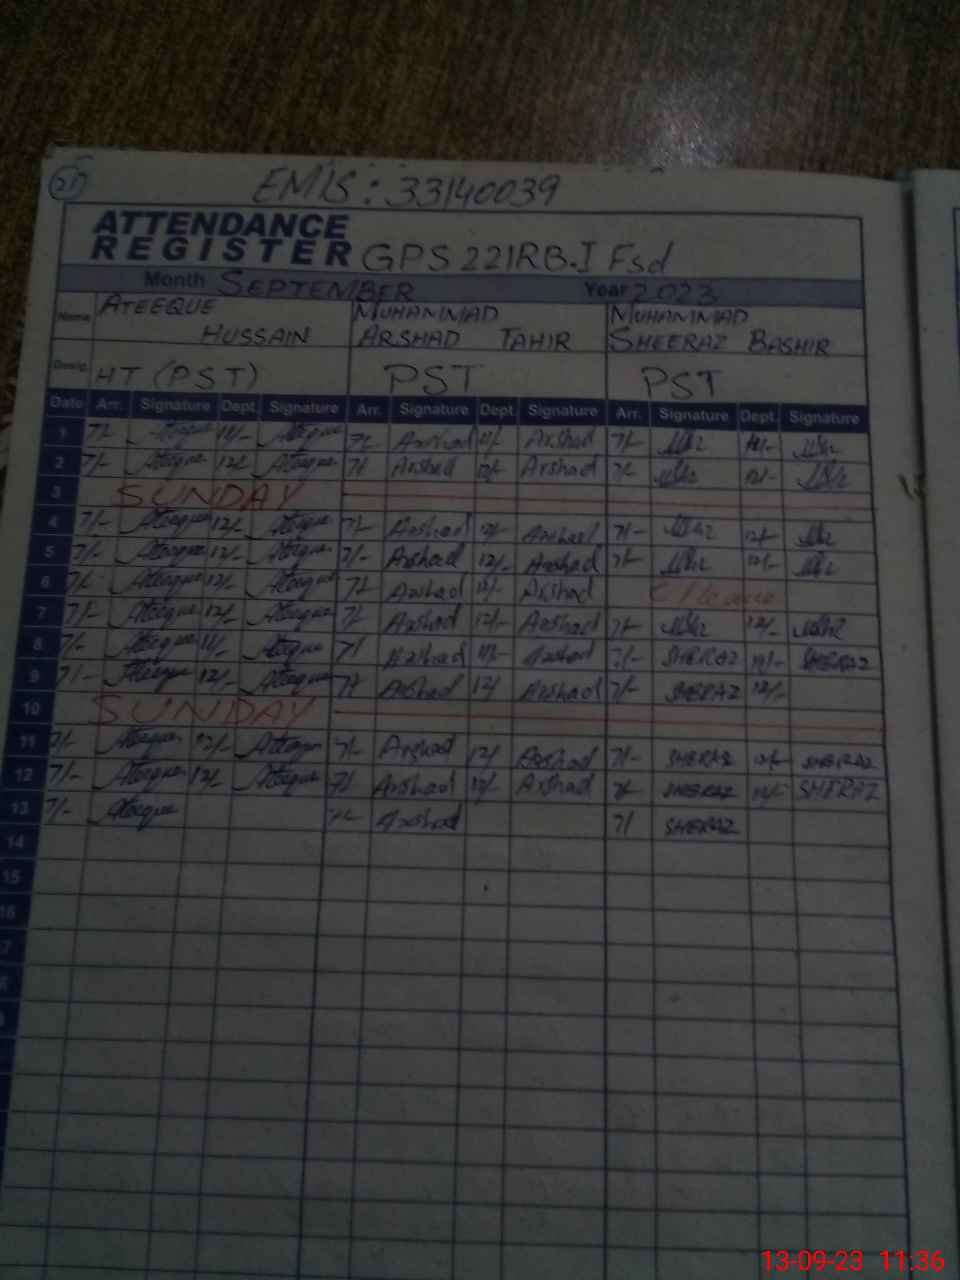 21
EMIS : 33140039
ATTENDANCE
REGISTER GPS 221RB-I Fsd
Month SEPTEMBER Year 2023
Name ATEEQUE HUSSAIN MUHAMMAD ARSHAD TAHIR MUHAMMAD SHEERAZ BASHIR
Desig. HT (PST) PST PST
Date Arr. Signature Dept. Signature Arr. Signature Dept. Signature Arr. Signature Dept. Signature
1 7/- Ateeque 11/- Ateeque 7/- Arshad 11/- Arshad 7/- 11/-
2 7/- Ateeque 12/- Ateeque 7/- Arshad 12/- Arshad 7/- 12/-
3 SUNDAY
4 7/- Ateeque 12/- Ateeque 7/- Arshad 12/- Arshad 7/- 12/-
5 7/- Ateeque 12/- Ateeque 7/- Arshad 12/- Arshad 7/- 12/-
6 7/- Ateeque 12/- Ateeque 7/- Arshad 12/- Arshad C/leave
7 7/- Ateeque 12/- Ateeque 7/- Arshad 12/- Arshad 7/- 12/-
8 7/- Ateeque 11/- Ateeque 7/ Arshad 11/- Arshad 7/- SHERAZ 11/- SHERAZ
9 7/- Ateeque 12/- Ateeque 7/- Arshad 12/ Arshad 7/- SHERAZ 12/-
10 SUNDAY
11 7/- Ateeque 12/- Ateeque 7/- Arshad 12/ Arshad 7/- SHERAZ 12/- SHERAZ
12 7/- Ateeque 12/- Ateeque 7/- Arshad 12/- Arshad 7/- SHERAZ 12/- SHERAZ
13 7/- Ateeque 7/- Arshad 7/ SHERAZ
14
15
13-09-23 11:36